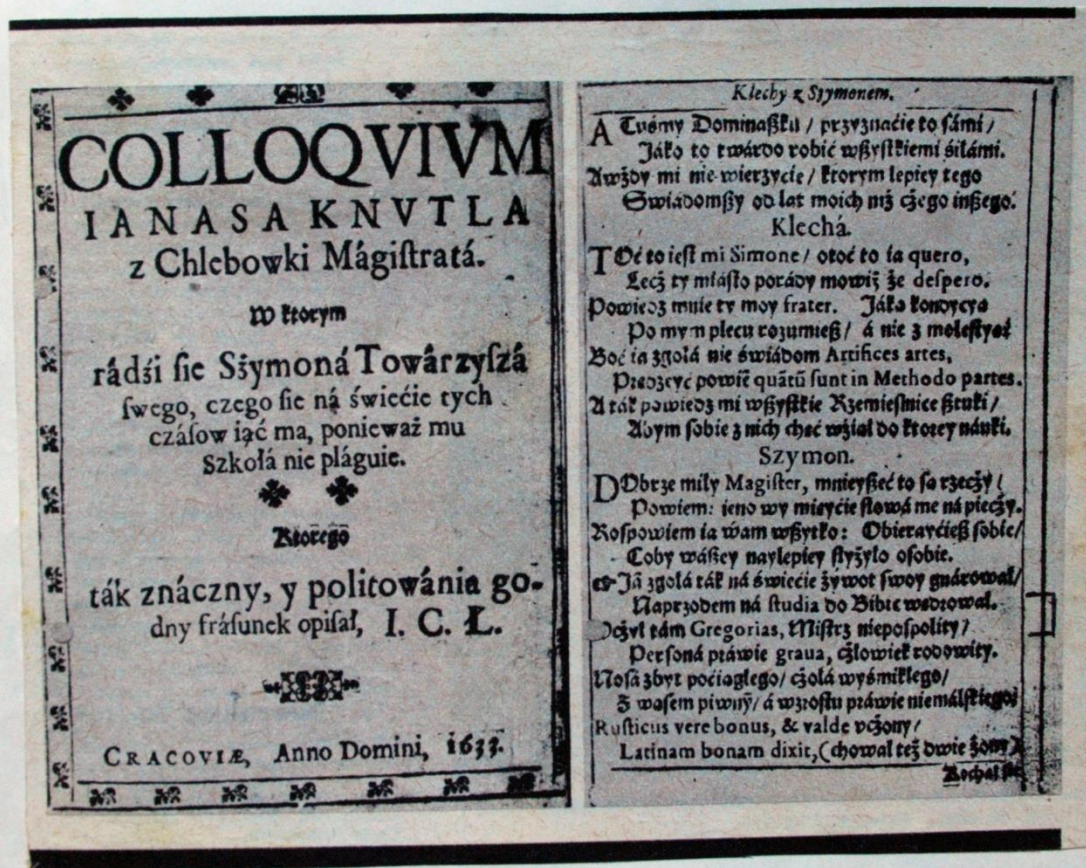 COLLOQVIVM
IANASA KNVTLA
z Chlebowki Mágiſtratá.
W ktorym
rádźi ſie Sżymoná Towárzyſzá
ſwego, czego ſie ná świećie tych
czáſow iąć ma, ponieważ mu
Szkołá nie pláguie.
Ktorego
ták znáczny, y politowánia go-
dny fráſunek opiſał, I. C. Ł.
CRACOVIÆ, Anno Domini, 1633.
Klechy z Szymonem.
A Tuśmy / przyznaćie to ſámi /
Jáko to twárdo robić wßyſtkiemi śiłámi.
Awżdy mi nie wierzyćie / ktorym lepiey tego
Swiádomßy od lat moich niż cżego inßego.
Klechá.
TOć to ieſt mi Simone / otoć to ia quero,
Lecż ty miáſto porády mowiß że deſpero.
Powiedz mnie ty moy frater. Jáka kondycya
Po mym plecu rozumieß / á nie z
Boć ia zgołá nie świádom Artifices artes,
powiē quātū ſunt in Methodo partes.
A ták powiedz mi wßyſtkie Rzemieſnice ßtuki /
Abym ſobie z nich chęć wżiął do ktorey náuki.
Szymon.
DObrze miły Magiſter, mnieyßeć to ſą rzecży /
Powiem: ieno wy mieyćie ſłowá me ná piecży.
Roſpowiem ia wam wßytko: Obierayćieß ſobie /
Coby wáßey naylepiey ſłyżyło oſobie.
Ja zgołá ták ná świećie żywot ſwoy
Naprzodem ná ſtudia do Bibic wędrował.
tám Gregorias, Miſtrz niepoſpolity /
Perſoná práwie graua, cżłowiek rodowity.
Noſá zbyt poćiągłego / cżołá wyśmikłego /
Z wąſem piwnỹ / á wzroſtu práwie
Ruſticus vere bonus, & valde vcżony /
Latinam bonam dixit, (chował też dwie żony)
Kochał ſię